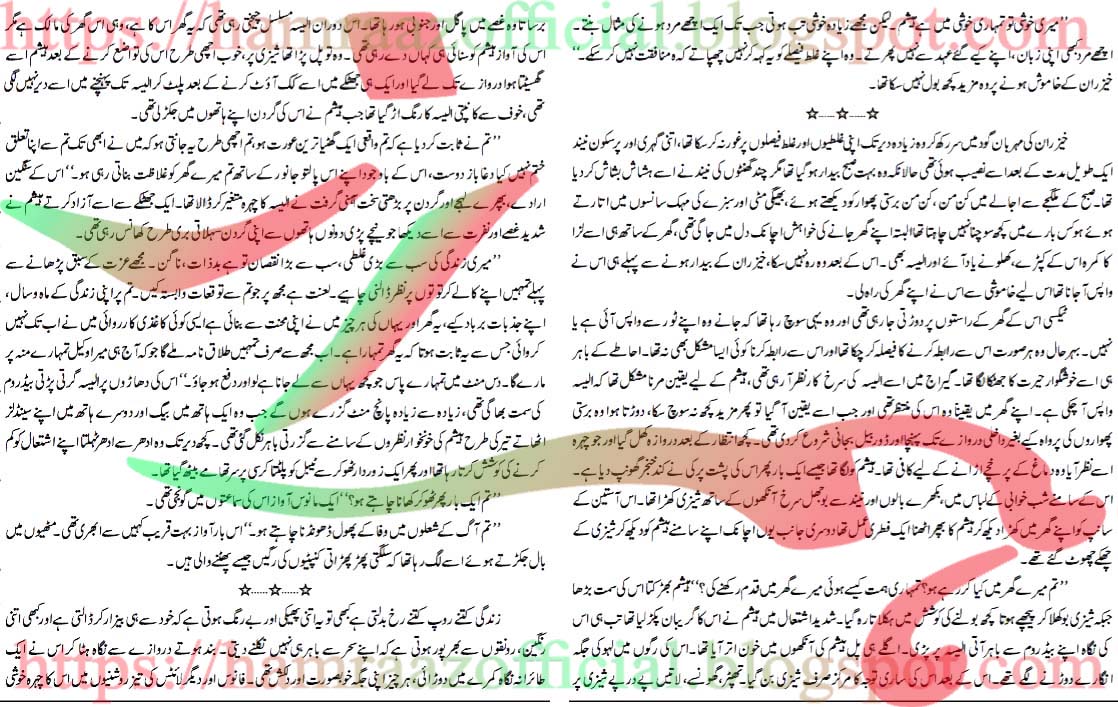 https://hamraazofficial.blogspot.com
''میری خوشی تو تمہاری خوشی میں ہے ہیشم لیکن مجھے زیادہ خوشی تب ہوتی جب تک ایک اچھے مرد ہونے کی مثال بنتے۔
اچھے مرد کبھی اپنی زبان، اپنے کیے گئے عہد سے نہیں پھرتے۔ وہ اپنے غلط فیصلے کو یہ کہہ کر نہیں چھپاتے کہ وہ منافقت نہیں کر سکے۔''
خیزران کے خاموش ہونے پر وہ مزید کچھ بول نہیں سکا تھا۔
☆......☆......☆
خیزران کی مہربان گود میں سر رکھ کر وہ زیادہ دیر تک اپنی غلطیوں اور غلط فیصلوں پر غور نہ کر سکا تھا، اتنی گہری اور پرسکون نیند
ایک طویل مدت کے بعد اسے نصیب ہوئی تھی حالانکہ وہ بہت صبح بیدار ہو گیا تھا مگر چند گھنٹوں کی نیند نے اسے ہشاش بشاش کر دیا
تھا۔ صبح کے ملگجے سے اجالے میں کن من، کن من برستی پھوار کو دیکھتے ہوئے، بھیگی مٹی اور سبزے کی مہک سانسوں میں اتارتے
ہوئے ہو کس بارے میں کچھ سوچنا نہیں چاہتا تھا البتہ اپنے گھر جانے کی خواہش اچانک دل میں جاگی تھی، گھر کے ساتھ ہی اسے لزا
کا کمرہ اس کے کپڑے، کھلونے یاد آئے اور الیسہ بھی۔ اس کے بعد وہ رہ نہیں سکا، خیزران کے بیدار ہونے سے پہلے ہی اس نے
واپس آ جانا تھا اس لیے خاموشی سے اس نے اپنے گھر کی راہ لی۔
ٹیکسی اس کے گھر کے راستوں پر دوڑتی جا رہی تھی اور وہ یہی سوچ رہا تھا کہ جانے وہ اپنے ٹور سے واپس آئی ہے یا
نہیں۔ بہرحال وہ ہر صورت اس سے رابطہ کرنے کا فیصلہ کر چکا تھا اور اس سے رابطہ کرنا کوئی ایسا مشکل بھی نہ تھا۔ احاطے کے باہر
ہی اسے خوشگوار حیرت کا جھٹکا لگا تھا۔ گیراج میں اسے الیسہ کی سرخ کار نظر آ رہی تھی، ہیشم کے لیے یقین کرنا مشکل تھا کہ الیسہ
واپس آ چکی ہے۔ اپنے گھر میں یقیناً وہ اس کی منتظر تھی اور جب اسے یقین آ گیا تو پھر مزید کچھ نہ سوچ سکا، دوڑتا ہوا وہ برستی
پھواروں کی پرواہ کیے بغیر داخلی دروازے تک پہنچا اور ڈور بیل بجانی شروع کر دی تھی۔ کچھ انتظار کے بعد دروازہ کھل گیا اور جو چہرہ
اسے نظر آیا وہ دماغ کے پرخچے اڑانے کے لیے کافی تھا۔ ہیشم کو لگا تھا جیسے ایک بار پھر اس کی پشت پر کی نے کند خنجر گھونپ دیا ہے۔
اس کے سامنے شب خوابی کے لباس میں، بکھرے بالوں اور نیند سے بوجھل سرخ آنکھوں کے ساتھ شیزی کھڑا تھا۔ اس آستین کے
سانپ کو اپنے گھر میں کھڑا دیکھ کر ہیشم کا بپھر اٹھنا ایک فطری عمل تھا دوسری جانب یوں اچانک اپنے سامنے ہیشم کو دیکھ کر شیزی کے
چھکے چھوٹ گئے تھے۔
''تم میرے گھر میں کیا کر رہے ہو؟ تمہاری ہمت کیسے ہوئی میرے گھر میں قدم رکھنے کی؟'' ہیشم بھڑکتا اس کی سمت بڑھا
جبکہ شیزی بوکھلا کر پیچھے ہوتا کچھ بولنے کی کوشش میں ہکلاتا رہ گیا۔ شدید اشتعال میں ہیشم نے اس کا گریبان پکڑ لیا تھا تب ہی اس
کی نگاہ اپنے بیڈ روم سے باہر آتی الیسہ پر پڑی۔ اگلے ہی پل ہیشم کی آنکھوں میں خون اتر آیا تھا۔ اس کی رگوں میں لہو کی جگہ
انگارے دوڑنے لگے تھے۔ اس کے بعد اس کی ساری توجہ کا مرکز صرف شیزی بن گیا۔ تھپڑ، گھونسے، لاتیں پے در پے شیزی پر
برساتا وہ غصے میں پاگل اور جنونی ہو رہا تھا۔ اس دوران الیسہ مسلسل چیختی رہی تھی کہ یہ گھر اس کا ہے، وہی اس گھر کی مالک ہے مگر
اس کی آواز ہیشم کو سنائی ہی کہاں دے رہی تھی۔ وہ تو پل پڑا تھا شیزی پر، خوب اچھی طرح اس کی تواضع کرنے کے بعد ہیشم اسے
گھسیٹتا ہوا دروازے تک لے گیا اور ایک ہی جھٹکے میں اسے گیٹ آؤٹ کرنے کے بعد پلٹ کر الیسہ تک پہنچنے میں اسے دیر نہیں لگی
تھی، خوف سے کانپتی الیسہ کا رنگ اڑ گیا تھا جب ہیشم نے اس کی گردن اپنے ہاتھوں میں جکڑ لی تھی۔
''تم نے ثابت کر دیا ہے کہ تم واقعی ایک گھٹیا ترین عورت ہو، تم اچھی طرح یہ جانتی ہو کہ میں نے ابھی تک تم سے اپنا تعلق
ختم نہیں کیا دغا باز دوست، اس کے باوجود اپنے اس پالتو جانور کے ساتھ تم میرے گھر کو غلاظت بناتی رہی ہو۔'' اس کے سنگین
ارادے، بپھرے لہجے اور گردن پر بڑھتی سخت ہوتی گرفت نے الیسہ کا چہرہ متغیر کر ڈالا تھا۔ ایک جھٹکے سے اسے آزاد کرتے ہیشم نے
شدید غصے اور نفرت سے اسے دیکھا جو نیچے پڑی دونوں ہاتھوں سے اپنی گردن سہلاتی بری طرح کھانس رہی تھی۔
''میری زندگی کی سب سے بڑی غلطی، سب سے بڑا نقصان تو ہے بدذات، ناگن۔ مجھے عزت کے سبق پڑھانے سے
پہلے تمہیں اپنے کالے کرتوتوں پر نظر ڈالنی چاہیے۔ لعنت ہے مجھ پر جو تم سے توقعات وابستہ کیں۔ تم پر اپنی زندگی کے ماہ و سال،
اپنے جذبات برباد کیے، یہ گھر اور یہاں کی ہر چیز میں نے اپنی محنت سے بنائی ہے ایسی کوئی کاغذی کارروائی میں نے اب تک نہیں
کروائی جس سے یہ ثابت ہوتا کہ یہ گھر تمہارا ہے۔ اب مجھ سے صرف تمہیں طلاق نامہ ملے گا جو کہ آج ہی میرا وکیل تمہارے منہ پر
مارے گا۔ دس منٹ میں تمہارے پاس جو کچھ یہاں سے لے جانا ہے لو اور دفع ہو جاؤ۔'' اس کی دھاڑوں پر الیسہ گرتی پڑتی بیڈ روم
کی سمت بھاگی تھی، زیادہ سے زیادہ پانچ منٹ گزرے ہوں گے جب وہ ایک ہاتھ میں بیگ اور دوسرے ہاتھ میں اپنے سینڈلز
اٹھائے تیر کی طرح ہیشم کی خونخوار نظروں کے سامنے سے گزرتی باہر نکل گئی تھی۔ کچھ دیر تک وہ ادھر سے ادھر ٹہلتا اپنے اشتعال کو کم
کرنے کی کوشش کرتا رہا تھا اور پھر ایک زوردار ٹھوکر سے ٹیبل کو پلٹتا کرسی پر سر تھامے بیٹھ گیا تھا۔
''تم ایک بار پھر ٹھوکر کھانا چاہتے ہو؟'' ایک مانوس آواز اس کی سماعتوں میں گونجی تھی۔
''تم آگ کے شعلوں میں وفا کے پھول ڈھونڈنا چاہتے ہو۔'' اس بار آواز بہت قریب کہیں سے ابھری تھی۔ مٹھیوں میں
بال جکڑتے ہوئے اسے لگ رہا تھا کہ سلگتی پھڑپھڑاتی کنپٹیوں کی رگیں جیسے پھٹنے والی ہیں۔
☆......☆......☆
زندگی کتنے روپ کتنے رخ بدلتی ہے کبھی تو یہ اتنی پھیکی اور بے رنگ ہوتی ہے کہ خود سے ہی بیزار کر ڈالتی ہے اور کبھی اتنی
رنگین، رونقوں سے بھرپور ہوتی ہے کہ اپنے سحر سے باہر ہی نہیں نکلنے دیتی۔ بند ہوتے دروازے سے نگاہ ہٹا کر اس نے ایک
طائرانہ نگاہ کمرے میں دوڑائی، ہر چیز اپنی جگہ خوبصورت اور دلکش تھی۔ فانوس اور دیگر لائٹس کی تیز روشنیوں میں اس کا چہرہ خوشی
https://hamraazofficial.blogspot.com